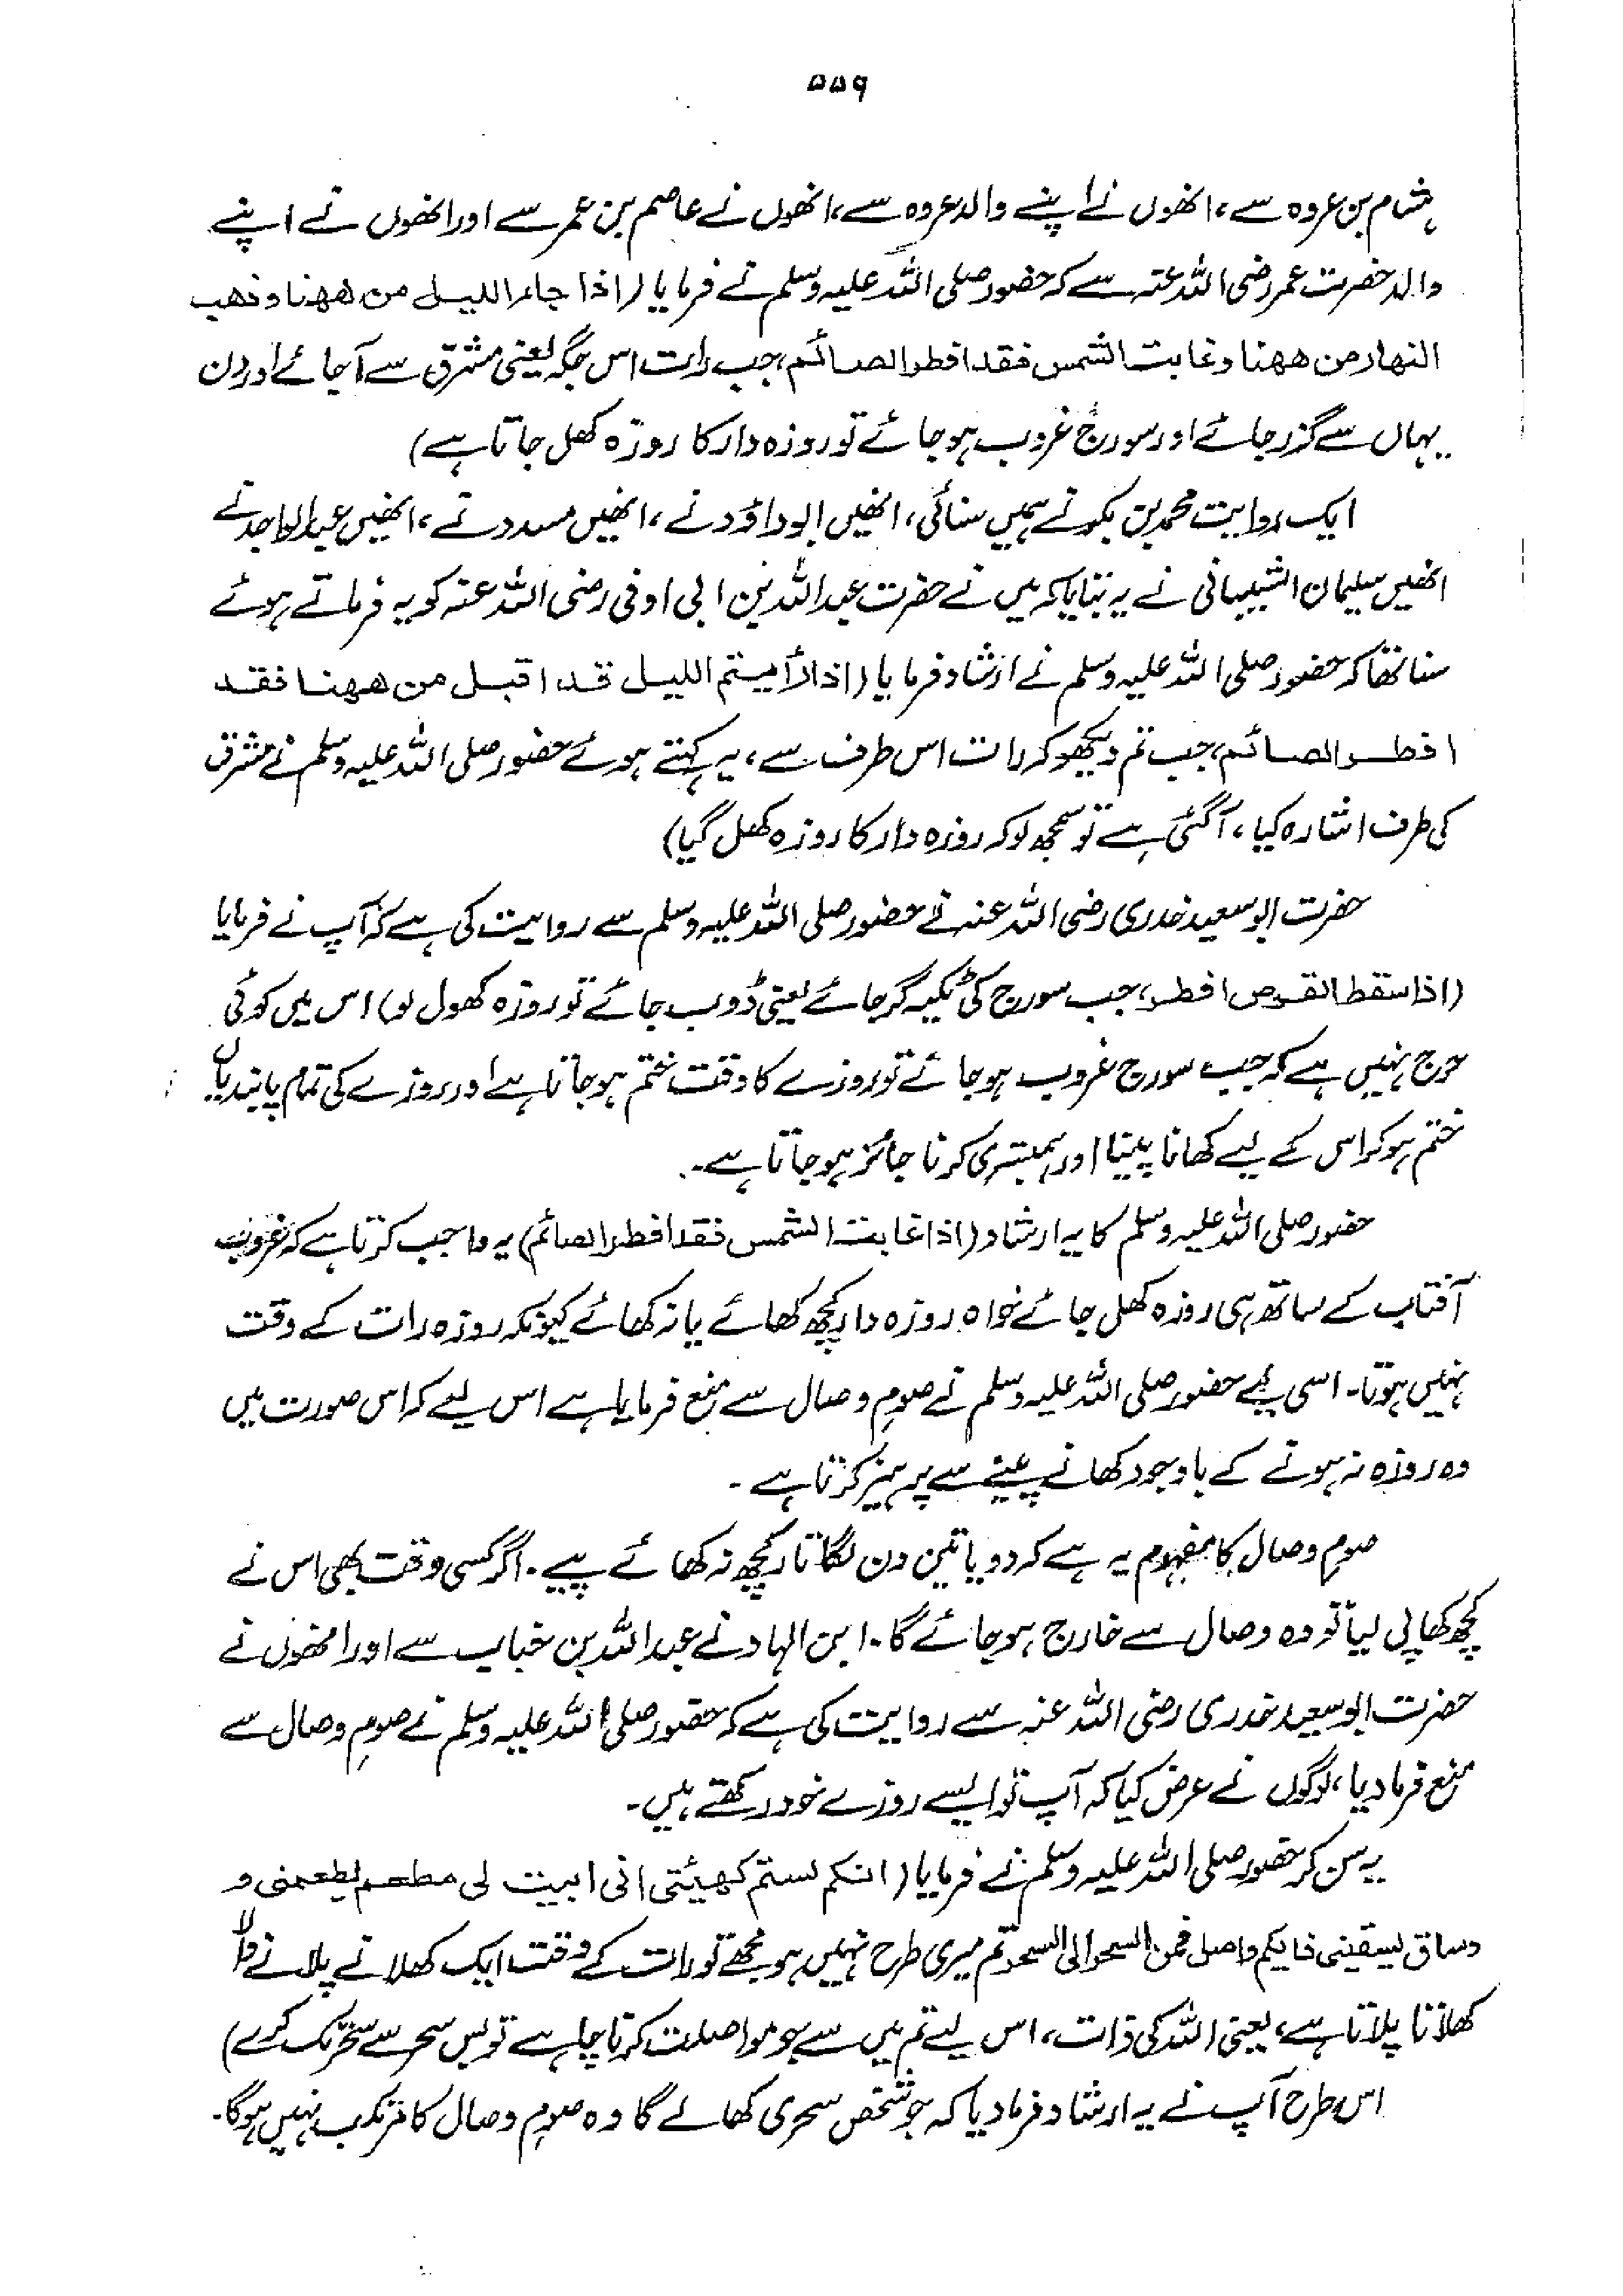 ۵۵۹
ہشام بن عروہ سے، انھوں نے اپنے والد عروہ سے، انھوں نے عاصم بن عمر سے اور انھوں نے اپنے
والد حضرت عمر رضی اللہ عنہ سے کہ حضور صلی اللہ علیہ وسلم نے فرمایا (اذا جاء اللیل من ھھنا و ذھب
النھار من ھھنا و غابت الشمس فقد افطر الصائم، جب رات اس جگہ یعنی مشرق سے آ جائے اور دن
یہاں سے گزر جائے اور سورج غروب ہو جائے تو روزہ دار کا روزہ کھل جاتا ہے)
ایک روایت محمد بن بکر نے ہمیں سنائی، انھیں ابو داؤد نے، انھیں مسدد نے، انھیں عبدالواحد نے
انھیں سلیمان الشیبانی نے یہ بتایا کہ میں نے حضرت عبداللہ بن ابی اوفی رضی اللہ عنہ کو یہ فرماتے ہوئے
سنا تھا کہ حضور صلی اللہ علیہ وسلم نے ارشاد فرمایا (اذا رأیتم اللیل قد اقبل من ھھنا فقد
افطر الصائم، جب تم دیکھو کہ رات اس طرف سے، یہ کہتے ہوئے حضور صلی اللہ علیہ وسلم نے مشرق
کی طرف اشارہ کیا، آ گئی ہے تو سمجھ لو کہ روزہ دار کا روزہ کھل گیا)
حضرت ابو سعید خدری رضی اللہ عنہ نے حضور صلی اللہ علیہ وسلم سے روایت کی ہے کہ آپ نے فرمایا
(اذا سقط القرص افطر، جب سورج کی ٹکیہ گر جائے یعنی ڈوب جائے تو روزہ کھول لو) اس میں کوئی
حرج نہیں ہے کہ جب سورج غروب ہو جائے تو روزے کا وقت ختم ہو جاتا ہے اور روزے کی تمام پابندیاں
ختم ہو کر اس کے لیے کھانا پینا اور ہمبستری کرنا جائز ہو جاتا ہے۔
حضور صلی اللہ علیہ وسلم کا یہ ارشاد (اذا غابت الشمس فقد افطر الصائم) یہ واجب کرتا ہے کہ غروب
آفتاب کے ساتھ ہی روزہ کھل جائے خواہ روزہ دار کچھ کھائے یا نہ کھائے کیونکہ روزہ رات کے وقت
نہیں ہوتا۔ اسی لیے حضور صلی اللہ علیہ وسلم نے صومِ وصال سے منع فرمایا ہے اس لیے کہ اس صورت میں
وہ روزہ نہ ہونے کے باوجود کھانے پینے سے پرہیز کرتا ہے۔
صومِ وصال کا مفہوم یہ ہے کہ دو یا تین دن لگاتار کچھ نہ کھائے پیے۔ اگر کسی وقت بھی اس نے
کچھ کھا پی لیا تو وہ وصال سے خارج ہو جائے گا۔ ابن الہاد نے عبداللہ بن خباب سے اور انھوں نے
حضرت ابو سعید خدری رضی اللہ عنہ سے روایت کی ہے کہ حضور صلی اللہ علیہ وسلم نے صومِ وصال سے
منع فرما دیا، لوگوں نے عرض کیا کہ آپ تو ایسے روزے خود رکھتے ہیں۔
یہ سن کر حضور صلی اللہ علیہ وسلم نے فرمایا (انکم لستم کھیئتی انی ابیت لی مطعم یطعمنی و
وساق یسقینی فایکم واصل فمن السحر الی السحر تم میری طرح نہیں ہو مجھے تو رات کے وقت ایک کھلانے پلانے والا
کھلاتا پلاتا ہے، یعنی اللہ کی ذات، اس لیے تم میں سے جو مواصلت کرنا چاہے تو بس سحر سے سحر تک کرے)
اس طرح آپ نے یہ ارشاد فرما دیا کہ جو شخص سحری کھا لے گا وہ صومِ وصال کا مرتکب نہیں ہوگا۔